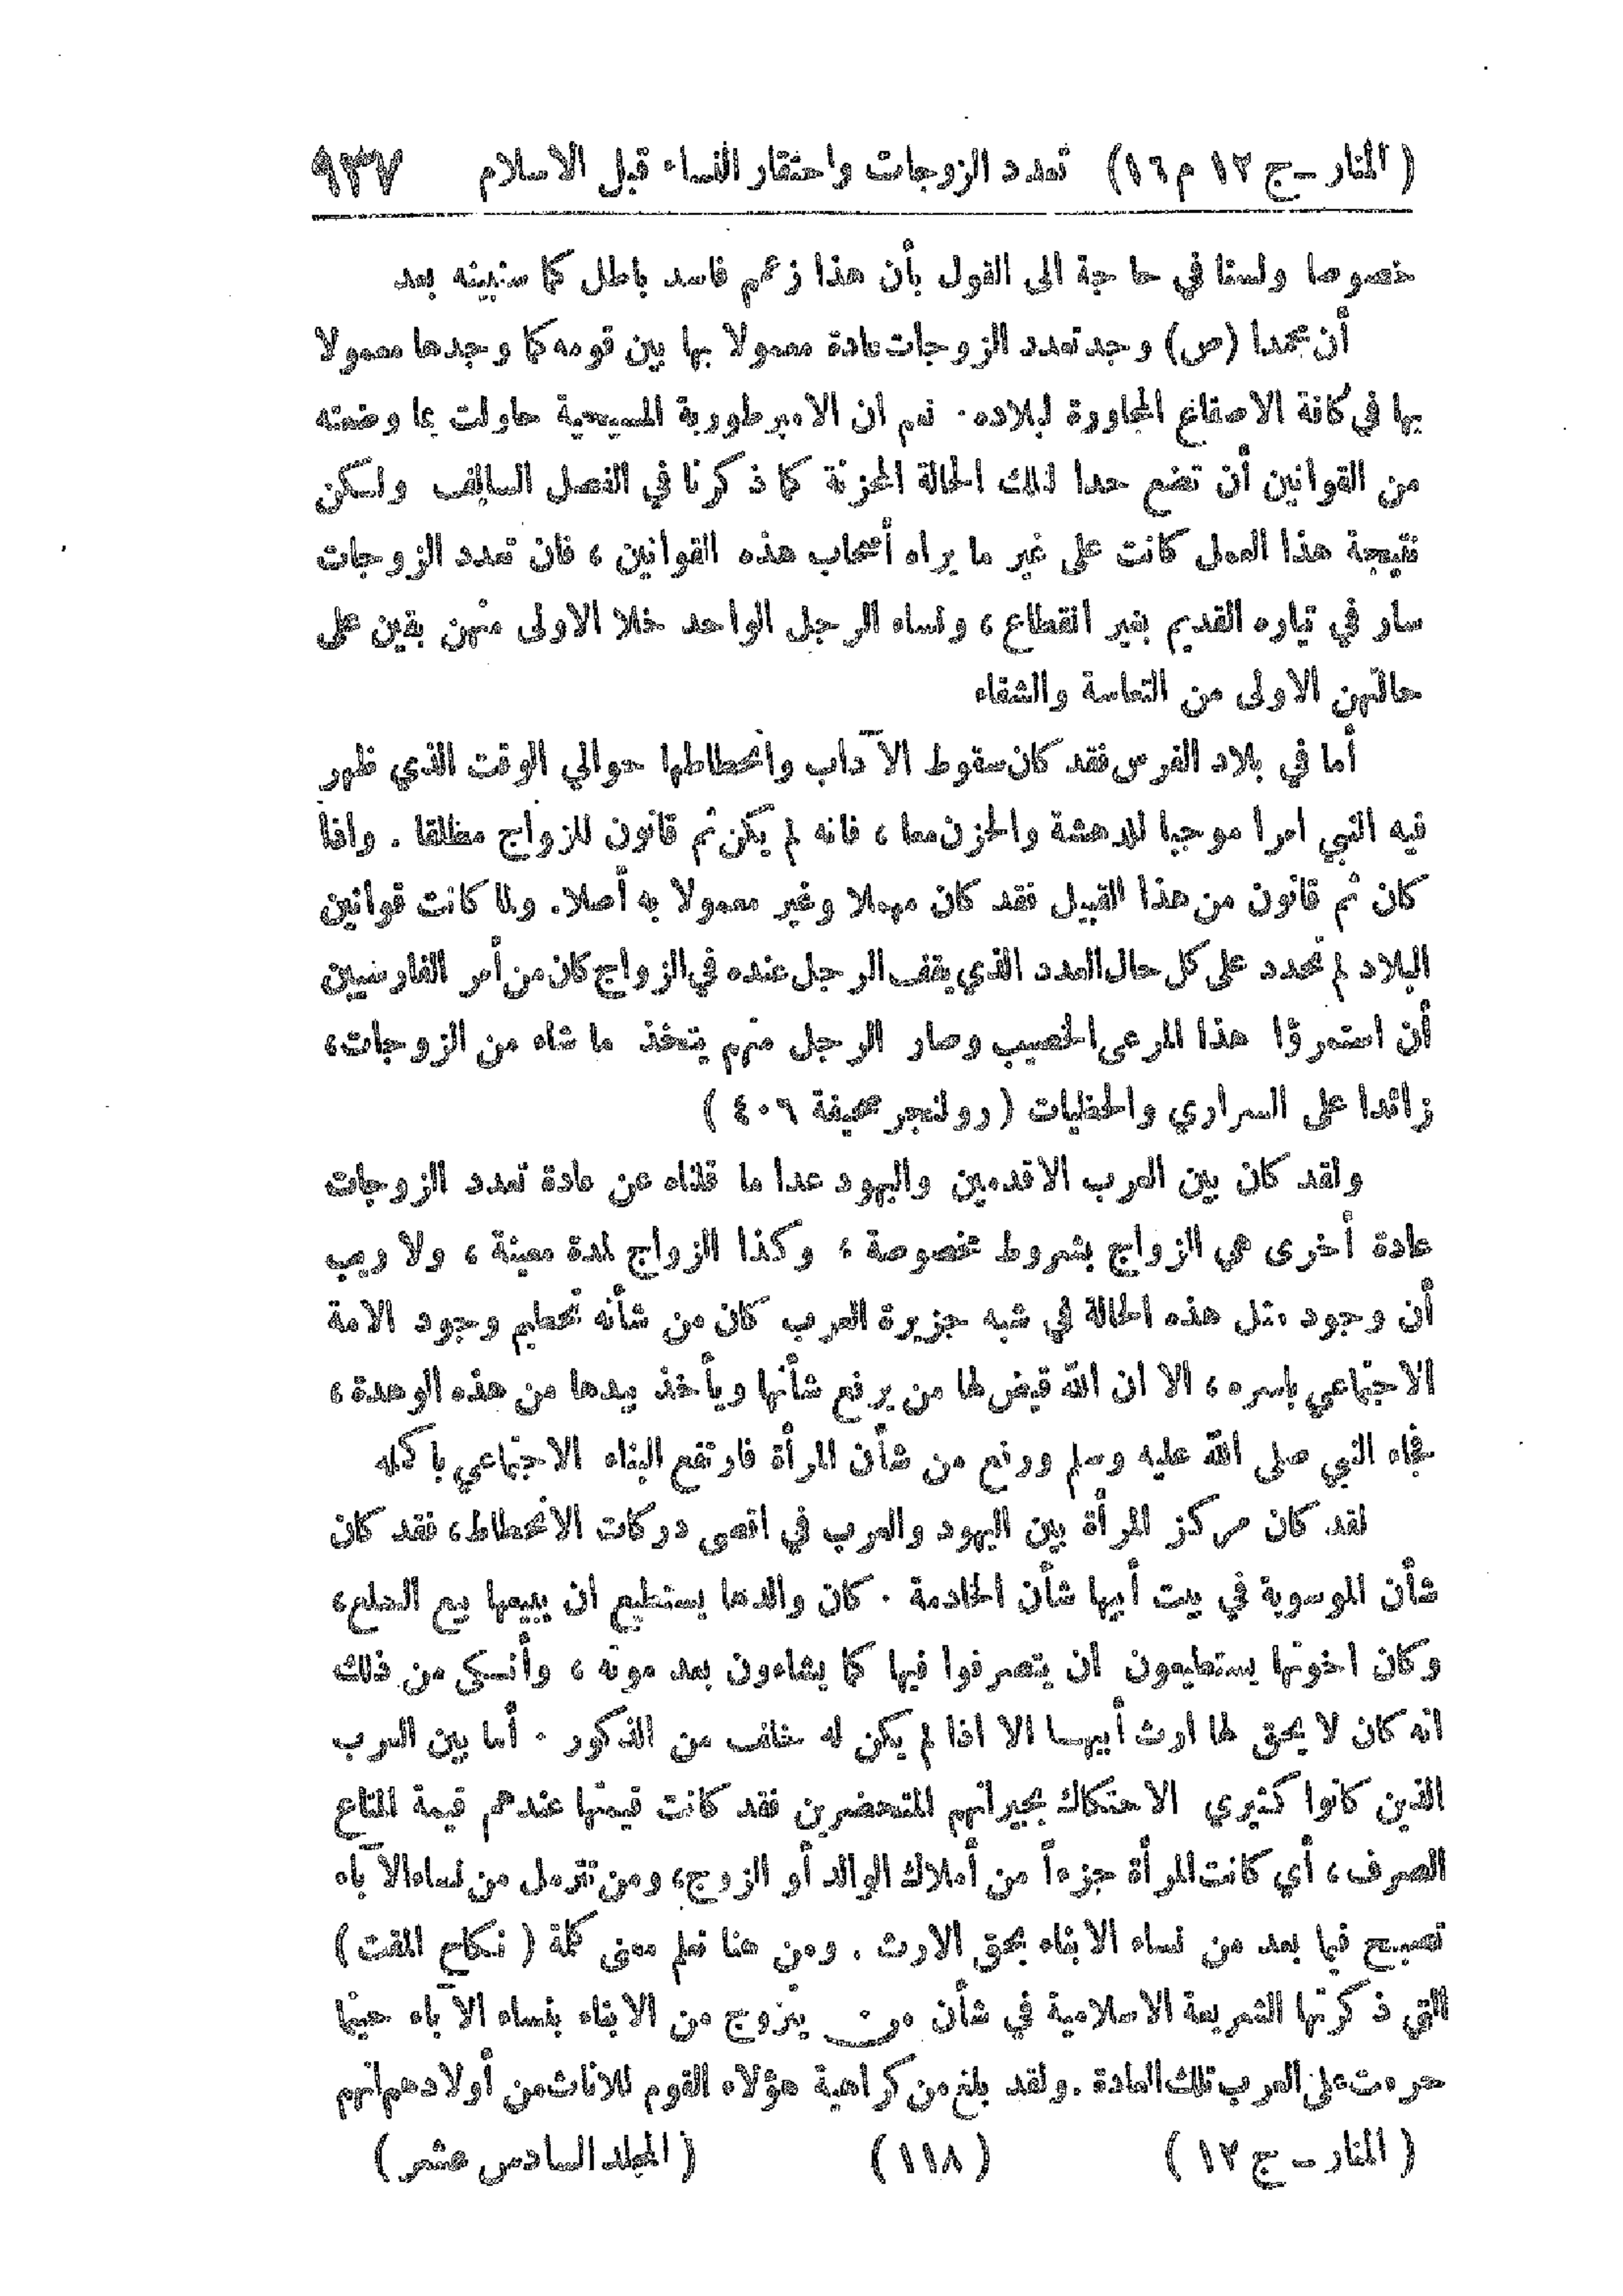 ( المنار – ج ١٢ م ١٦) تعدد الزوجات واحتقار النساء قبل الاسلام ٩٣٧
خصوصا ولسنا في حاجة الى القول بأن هذا زعم فاسد باطل كما سنبينه بعد
أن محمدا (ص) وجد تعدد الزوجات عادة معمولا بها بين قومه كما وجدها معمولا
بها في كافة الاصقاع المجاورة لبلاده . نعم ان الامبرطورية المسيحية حاولت بما وضعته
من القوانين أن تضع حدا لتلك الحالة المحزنة كما ذكرنا في الفصل السالف ولكن
نتيجة هذا العمل كانت على غير ما يراه أصحاب هذه القوانين ، فان تعدد الزوجات
سار في تياره القديم بغير انقطاع ، ونساء الرجل الواحد خلا الاولى منهن بقين على
حالتهن الاولى من التعاسة والشقاء
أما في بلاد الفرس فقد كان سقوط الآداب وانحطاطها حوالي الوقت الذي ظهر
فيه النبي امرا موجبا للدهشة والحزن معا ، فانه لم يكن ثم قانون للزواج مطلقا . واذا
كان ثم قانون من هذا القبيل فقد كان مهملا وغير معمولا به أصلا . ولما كانت قوانين
البلاد لم تحدد على كل حال العدد الذي يقف الرجل عنده في الزواج كان من أمر الفارسيين
أن استمرؤا هذا المرعى الخصيب وصار الرجل منهم يتخذ ما شاء من الزوجات ،
زائدا على السراري والحظيات ( رولنجر صحيفة ٤٠٦ )
ولقد كان بين العرب الاقدمين واليهود عدا ما قلناه عن عادة تعدد الزوجات
عادة أخرى هي الزواج بشروط مخصوصة ، وكذا الزواج لمدة معينة ، ولا ريب
أن وجود مثل هذه الحالة في شبه جزيرة العرب كان من شأنه تحطيم وجود الامة
الاجتماعي باسره ، الا ان الله قيض لها من يرفع شأنها ويأخذ بيدها من هذه الوهدة ،
فجاء النبي صلى الله عليه وسلم ورفع من شأن المرأة فارتفع البناء الاجتماعي باكمله
لقد كان مركز المرأة بين اليهود والعرب في اقصى دركات الانحطاط ، فقد كان
شأن الموسوية في بيت أبيها شأن الخادمة . كان والدها يستطيع ان يبيعها بيع السلع ،
وكان اخوتها يستطيعون ان يتصرفوا فيها كما يشاءون بعد موته ، وأنكى من ذلك
انه كان لا يحق لها ارث أبيها الا اذا لم يكن له خلف من الذكور . أما بين العرب
الذين كانوا كثيري الاحتكاك بجيرانهم المتحضرين فقد كانت قيمتها عندهم قيمة المتاع
الصرف ، أي كانت المرأة جزءاً من أملاك الوالد أو الزوج ، ومن تترمل من نساء الآباء
تصبح فيما بعد من نساء الابناء بحق الارث . ومن هنا نعلم معنى كلمة ( نكاح المقت )
التي ذكرتها الشريعة الاسلامية في شأن من يتزوج من الابناء بنساء الآباء حينما
حرمت على العرب تلك العادة . ولقد بلغ من كراهية هؤلاء القوم للاناث من أولادهم انهم
( المنار – ج ١٢ ) ( ١١٨ ) ( المجلد السادس عشر )